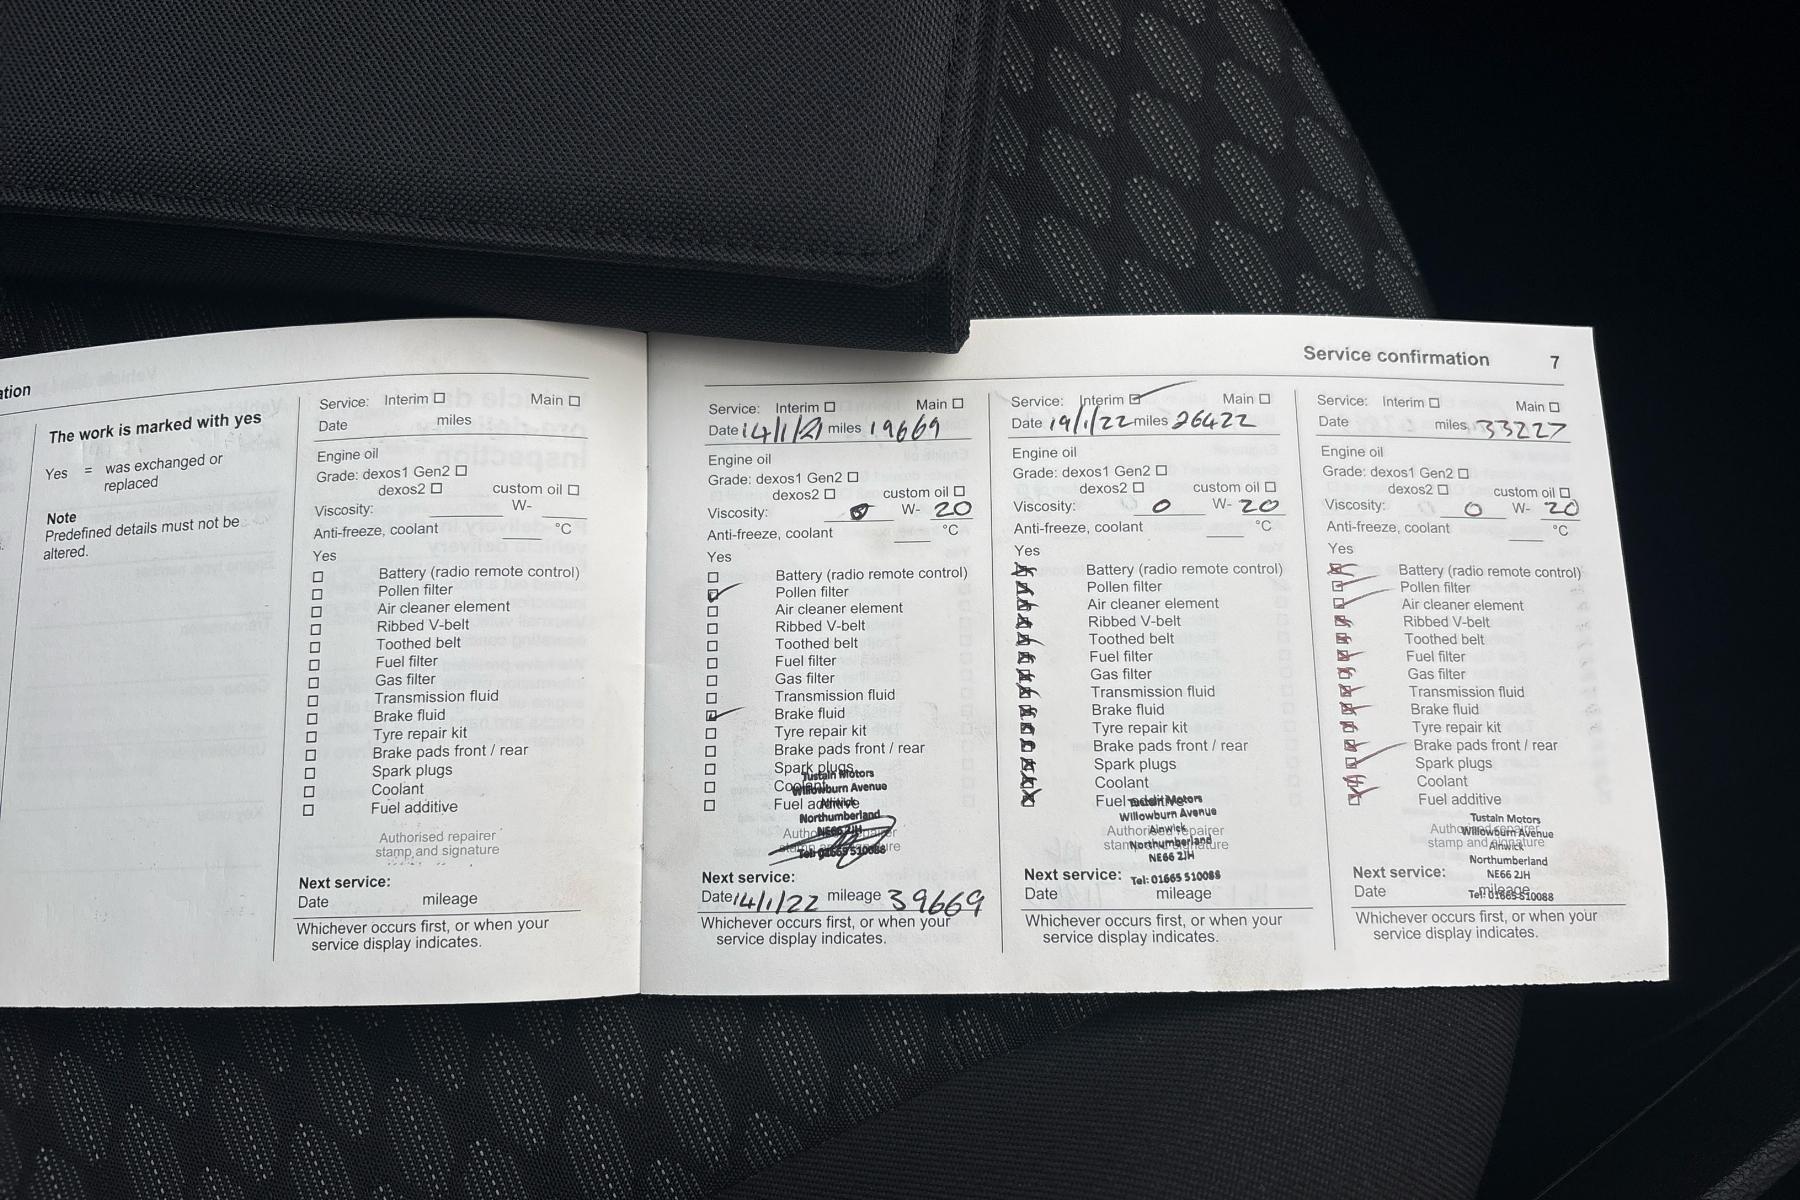 ation
The work is marked with yes
Yes = was exchanged or
replaced
Note
Predefined details must not be
altered.
Service: Interim ☐ Main ☐
Date miles
Engine oil
Grade: dexos1 Gen2 ☐
dexos2 ☐ custom oil ☐
Viscosity: W-
Anti-freeze, coolant °C
Yes
Battery (radio remote control)
Pollen filter
Air cleaner element
Ribbed V-belt
Toothed belt
Fuel filter
Gas filter
Transmission fluid
Brake fluid
Tyre repair kit
Brake pads front / rear
Spark plugs
Coolant
Fuel additive
Authorised repairer
stamp and signature
Next service:
Date mileage
Whichever occurs first, or when your
service display indicates.
Service confirmation 7
Service: Interim ☐ Main ☐
Date 14/1/21 miles 19669
Engine oil
Grade: dexos1 Gen2 ☐
dexos2 ☐ custom oil ☐
Viscosity: 0 W- 20
Anti-freeze, coolant °C
Yes
Battery (radio remote control)
Pollen filter
Air cleaner element
Ribbed V-belt
Toothed belt
Fuel filter
Gas filter
Transmission fluid
Brake fluid
Tyre repair kit
Brake pads front / rear
Spark plugs
Tustain Motors
Coolant
Willowburn Avenue
Fuel additive
Alnwick
Northumberland
Authorised repairer
NE66 2JH
stamp and signature
Tel: 01665 510088
Next service:
Date 14/1/22 mileage 39669
Whichever occurs first, or when your
service display indicates.
Service: Interim ☑ Main ☐
Date 19/1/22 miles 26422
Engine oil
Grade: dexos1 Gen2 ☐
dexos2 ☐ custom oil ☐
Viscosity: 0 W- 20
Anti-freeze, coolant °C
Yes
Battery (radio remote control)
Pollen filter
Air cleaner element
Ribbed V-belt
Toothed belt
Fuel filter
Gas filter
Transmission fluid
Brake fluid
Tyre repair kit
Brake pads front / rear
Spark plugs
Coolant
Fuel additive
Tustain Motors
Willowburn Avenue
Authorised repairer
Alnwick
stamp and signature
Northumberland
NE66 2JH
Tel: 01665 510088
Next service:
Date mileage
Whichever occurs first, or when your
service display indicates.
Service: Interim ☐ Main ☐
Date miles 33227
Engine oil
Grade: dexos1 Gen2 ☐
dexos2 ☐ custom oil ☐
Viscosity: 0 W- 20
Anti-freeze, coolant °C
Yes
Battery (radio remote control)
Pollen filter
Air cleaner element
Ribbed V-belt
Toothed belt
Fuel filter
Gas filter
Transmission fluid
Brake fluid
Tyre repair kit
Brake pads front / rear
Spark plugs
Coolant
Fuel additive
Tustain Motors
Authorised repairer
Willowburn Avenue
stamp and signature
Alnwick
Northumberland
NE66 2JH
Tel: 01665 510088
Next service:
Date mileage
Whichever occurs first, or when your
service display indicates.